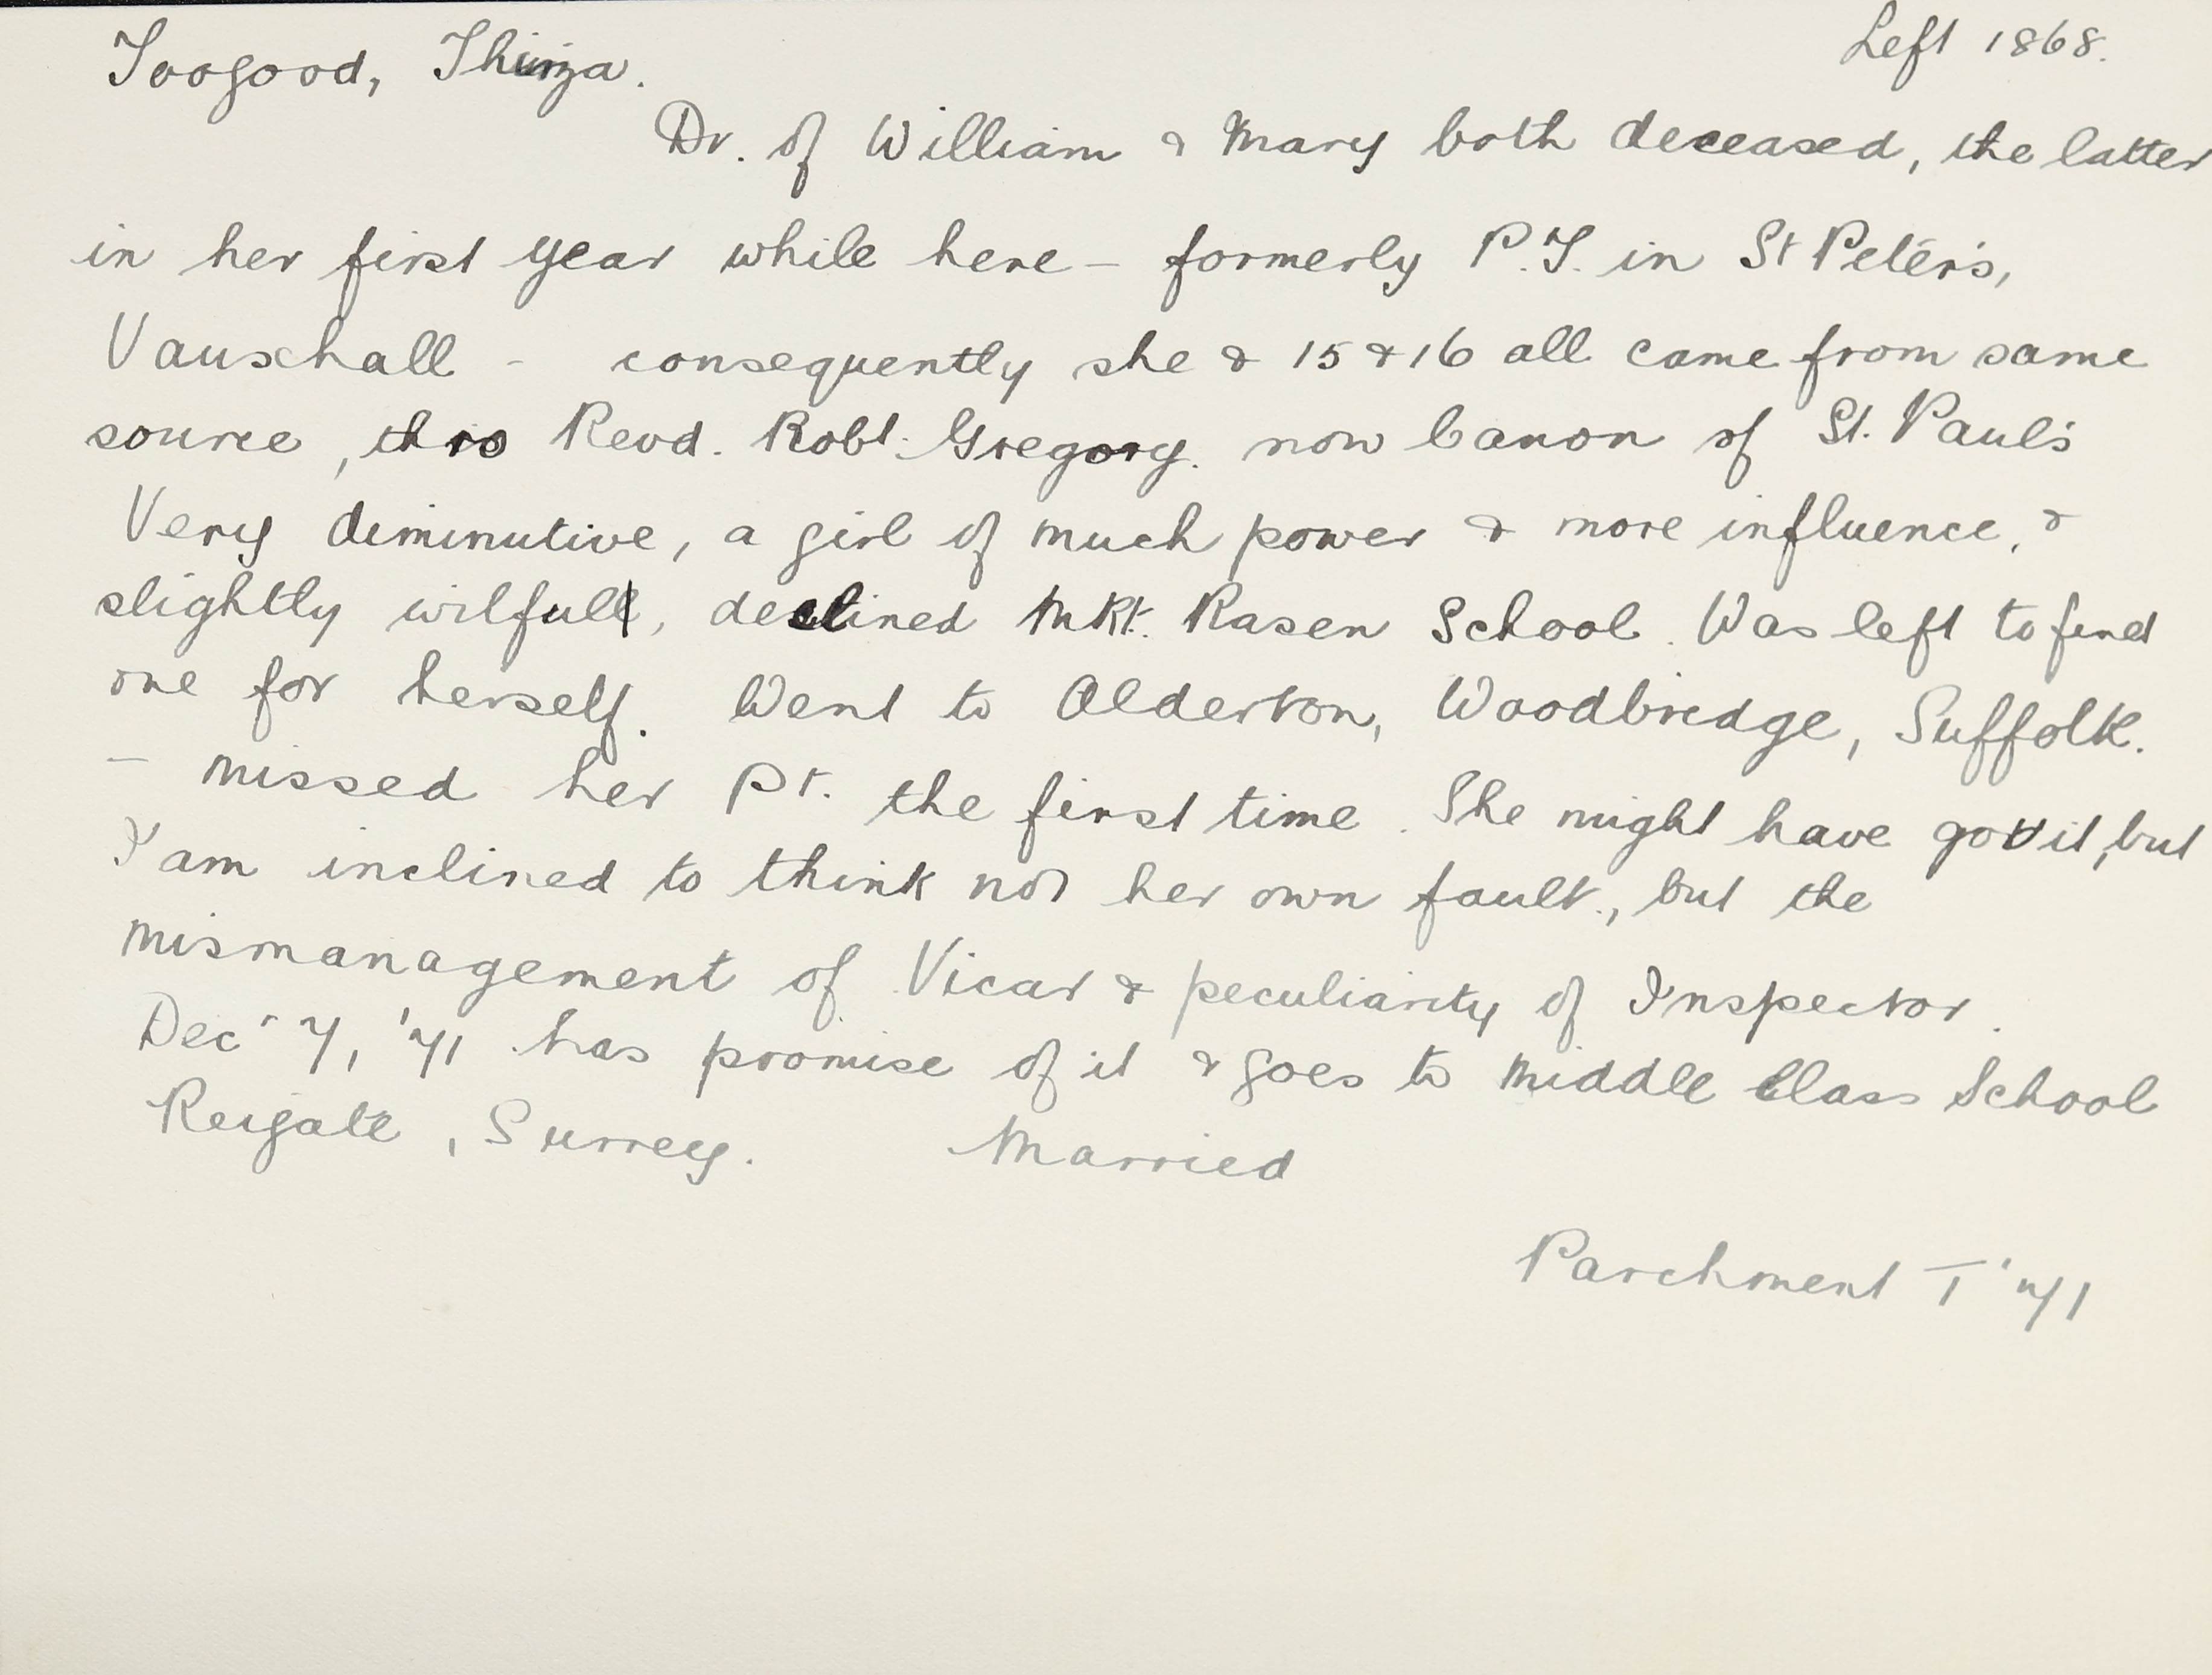 Toogood, Thirza.
Left 1868.
Dr. of William & Mary both deceased, the latter
in her first year while here – formerly P.T. in St Peter's,
Vauxhall - consequently she & 15 & 16 all came from same
source, thro Revd. Robt. Gregory. now Canon of St. Paul's
Very diminutive, a girl of much power & more influence, &
slightly wilful, declined Mkt. Rasen School. Was left to find
one for herself. Went to Alderton, Woodbridge, Suffolk.
– missed her Pt. the first time. She might have got it, but
I am inclined to think not her own fault, but the
mismanagement of Vicar & peculiarity of Inspector.
Decr 7, '71 has promise of it & goes to Middle Class School
Reigate, Surrey. Married
Parchment T '71